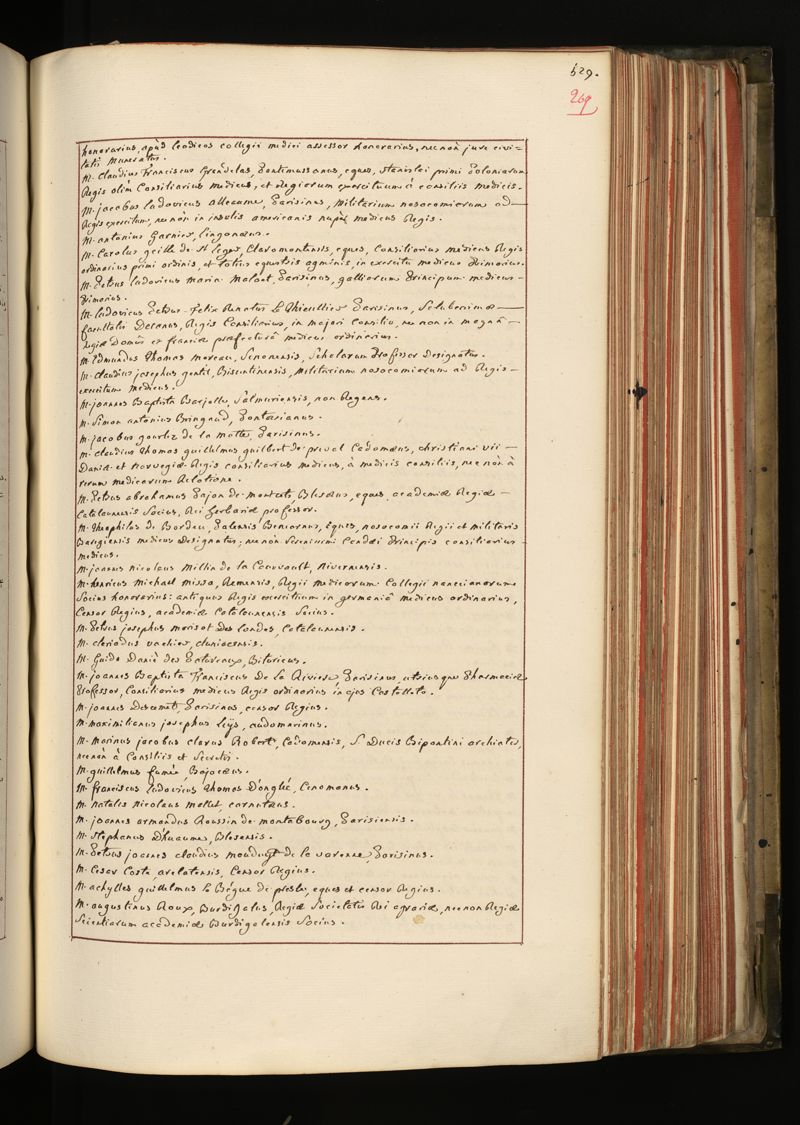 529.
269
honorarius, apud leodicos collegii medici assessor honorarius, nec non jure civi-
tatis muneratus.
M. Claudius Franciscus Grandclas, fontemussanus, eques, stanislai primi Poloniarum
Regis olim Consiliarius medicus, et Regiorum exercituum à consiliis medicis.
M. jacobus ludovicus alleaume, Parisinus, militarium nosocomiorum ad
Regis exercitum, nec non in insulis americanis nuper medicus Regis.
M. antonius Garnier, lingonæus.
M. Carolus geille de St leger, Claromontensis, eques, Consiliarius medicus Regis
ordinarius primi ordinis, et totius equestris agminis, in exercitu medicus Primarius.
M. Petrus ludovicus maria maloet, Parisinus, galliarum Principum medicus
Primarius.
M. ludovicus Petrus Felix Renatus Le Thieullier Parisinus, Saluberrimæ
facultatis Decanus, Regis Consiliarius, in majori consilio, nec non in magnâ
Regiæ Domûs et franciæ præfecturâ medicus ordinarius.
M. Edmundus Thomas moreau, Senonensis, Scholarum Professor Designatus.
M. claudius josephus gentil, Bisuntinensis, militarium nosocomiorum ad Regis
exercitum medicus.
M. joannes Baptista Barjolle, Salmuriensis, non Regens.
M. Simon antonius Bringaud, Pontesianus.
M. jacobus gourlez de la motte, Parisinus.
M. claudius Thomas guillelmus guilbert de preval Cadomæus, christiani vii
Daniæ et Norvegiæ Regis consiliarius medicus, à medicis consiliis, nec non à
rerum medicarum Relatione.
M. Petrus abrahamus Pajon de moncets, Blesæus, eques, academiæ Regiæ
Catalaunensis Socius, Rei herbariæ professor.
M. Theophilus de Bordeu, Palensis Bencarnus, Eques, nosocomii Regii et militaris
Baregiensis medicus Designatus; nec non Serenissimi Condæi Principis consiliarius
medicus.
M. joannes nicolaus millin de la Courvault, nivernensis.
M. henricus michael missa, Remensis, Regii medicorum Collegii nanceianorum
Socius honorarius: antiquus Regis exercituum in germaniâ medicus ordinarius,
Censor Regius, academiæ Catalaunensis Socius.
M. Petrus josephus morisot Des landes, Catalaunensis.
M. cleriadus vachier, cluniacensis.
M. Guido Danié des Patureaux, Bituricus.
M. joannes Baptista Franciscus De La Riviere, Parisinus, utriusque Pharmaciæ
Professor, Consiliarius medicus Regis ordinarius in ejus Castelleto.
M. joannes Descemet, Parisinus, censor Regius.
M. maximilianus josephus leys, audomarinus.
M. Marinus jacobus clarus Robert, Cadomensis, S. Ducis Bipontini archiater,
nec non à Consiliis et Secretis.
M. guillelmus fumée, Bajocæus.
M. franciscus ludovicus Thomas D'onglée, Cenomanus.
M. natalis nicolaus mallet, carnutæus.
M. joannes armandus Roussin de montabourg, Parisiensis.
M. Stephanus D'huaume, Blesensis.
M. Petrus joannes claudius mauduyt de la varenne, Parisinus.
M. Cesar Costa, arelatensis, Censor Regius.
M. achylles guillelmus le Bégue de presle, eques et censor Regius.
M. augustinus Roux, Burdigalus, Regiæ Societatis Rei agrariæ, nec non Regiæ
Scientiarum academiæ Burdigalensis Socius.